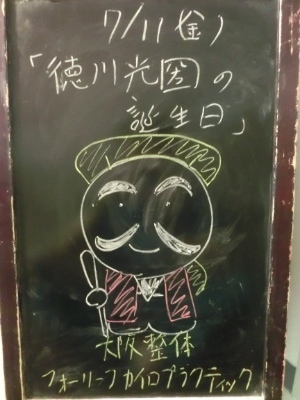 7/11(金)
「徳川光圀の
誕生日」
大阪整体
フォーリーフカイロプラクティック